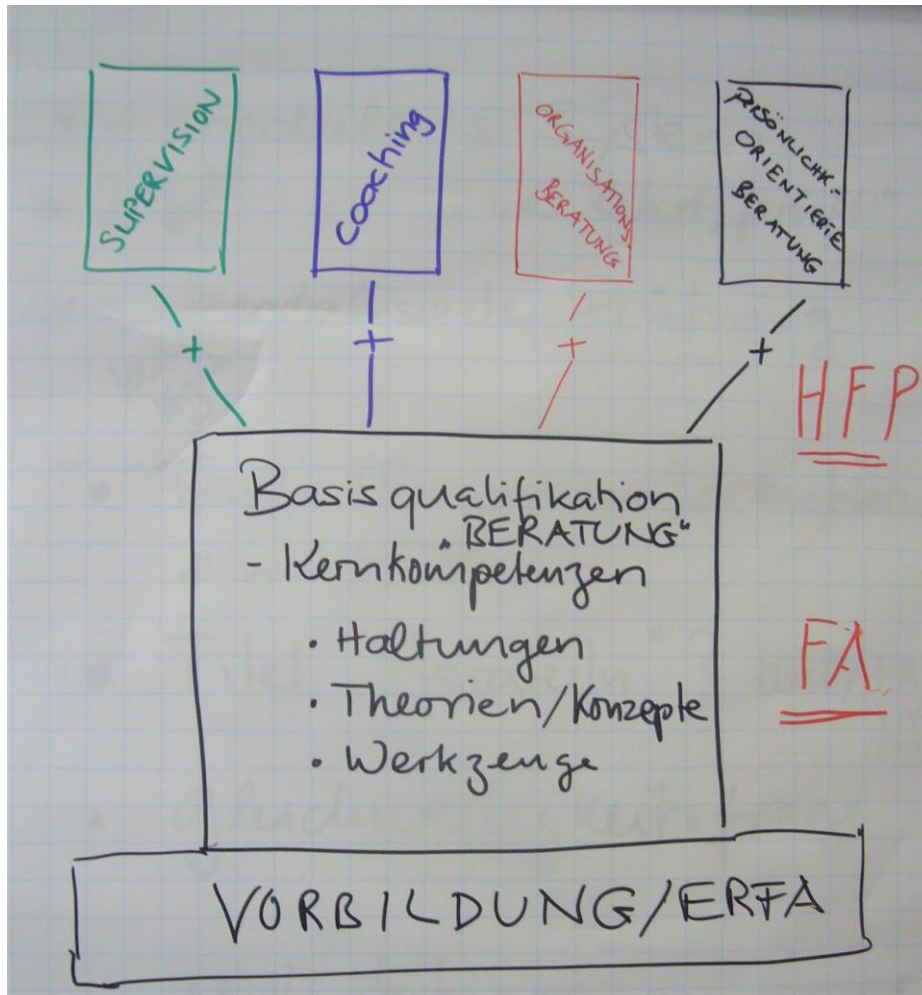 SUPERVISION
Coaching
ORGANISATIONS-
BERATUNG
PERSÖNLICHK.-
ORIENTIERTE
BERATUNG
+
+
+
+
HFP
Basisqualifikation
"BERATUNG"
- Kernkompetenzen
• Haltungen
FA
• Theorien/Konzepte
• Werkzeuge
VORBILDUNG/ERFA